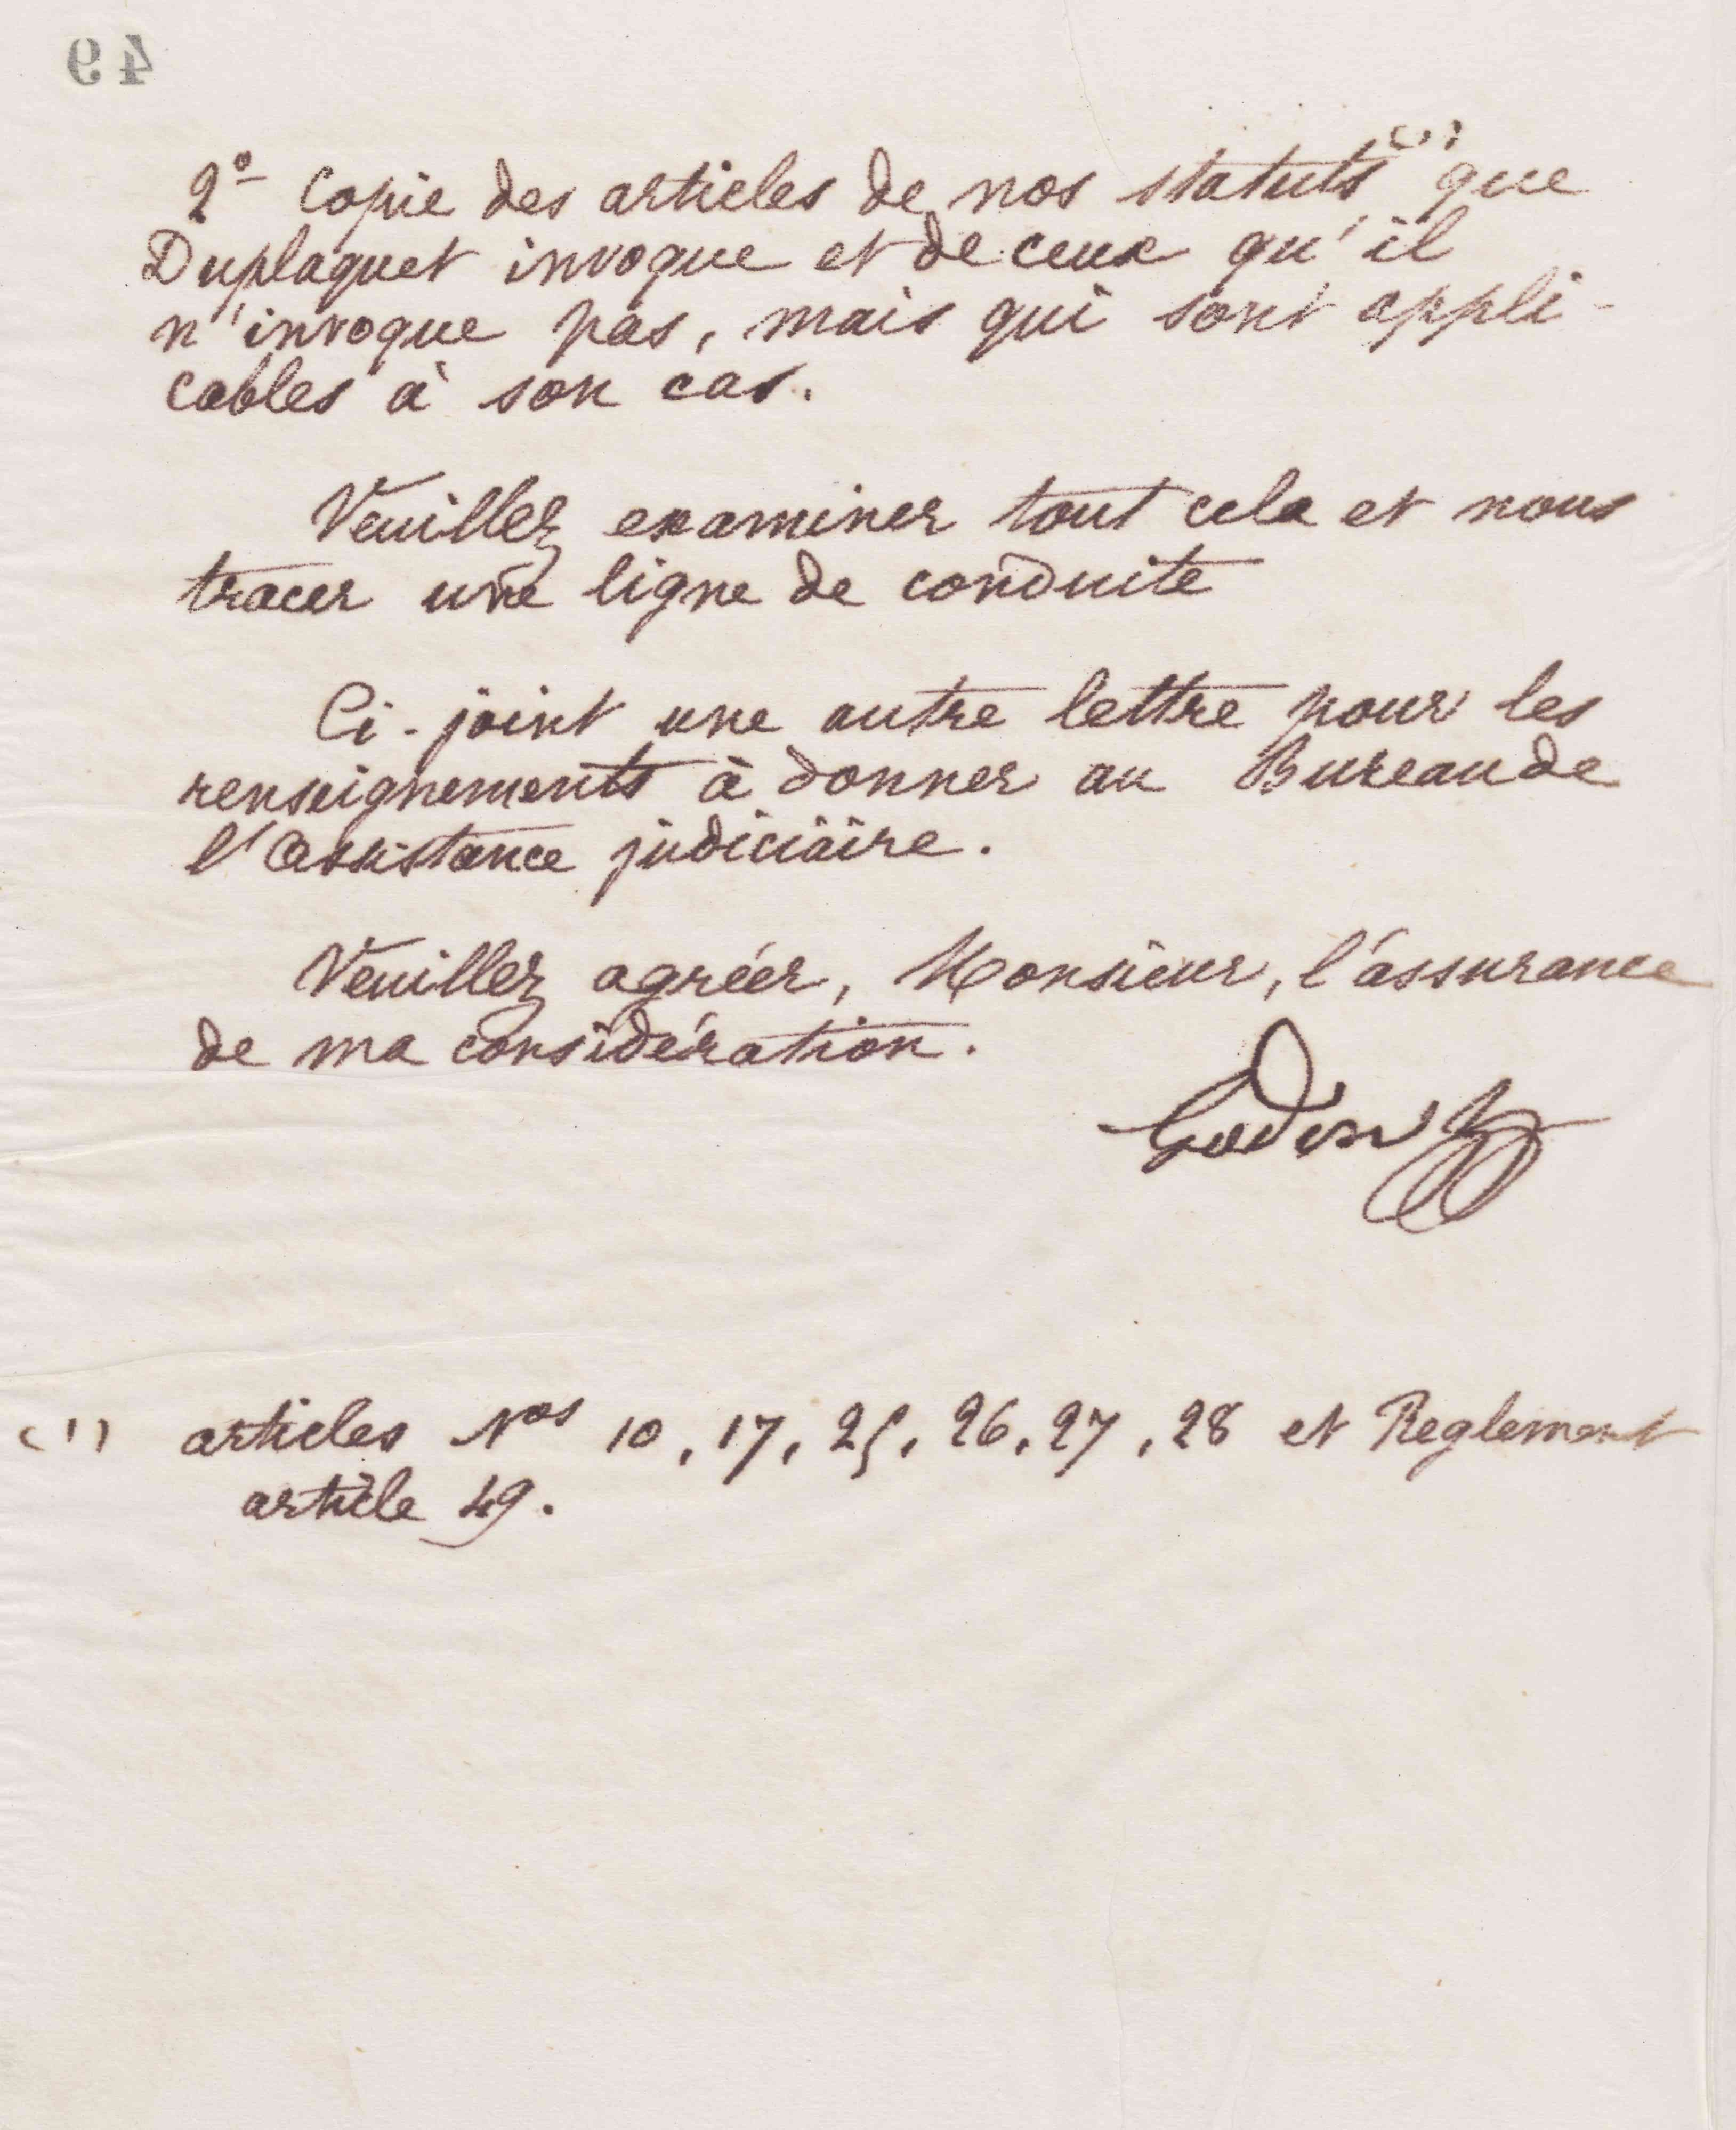 49
2º Copie des articles de nos statuts (1) que
Duplaquet invoque et de ceux qu'il
n'invoque pas, mais qui sont appli-
cables à son cas.
Veuillez examiner tout cela et nous
tracer une ligne de conduite
Ci-joint une autre lettre pour les
renseignements à donner au Bureau de
l'Assistance judiciaire.
Veuillez agréer, Monsieur, l'assurance
de ma considération.
Godin
(1) articles Nos 10, 17, 25, 26, 27, 28 et Reglement
article 49.